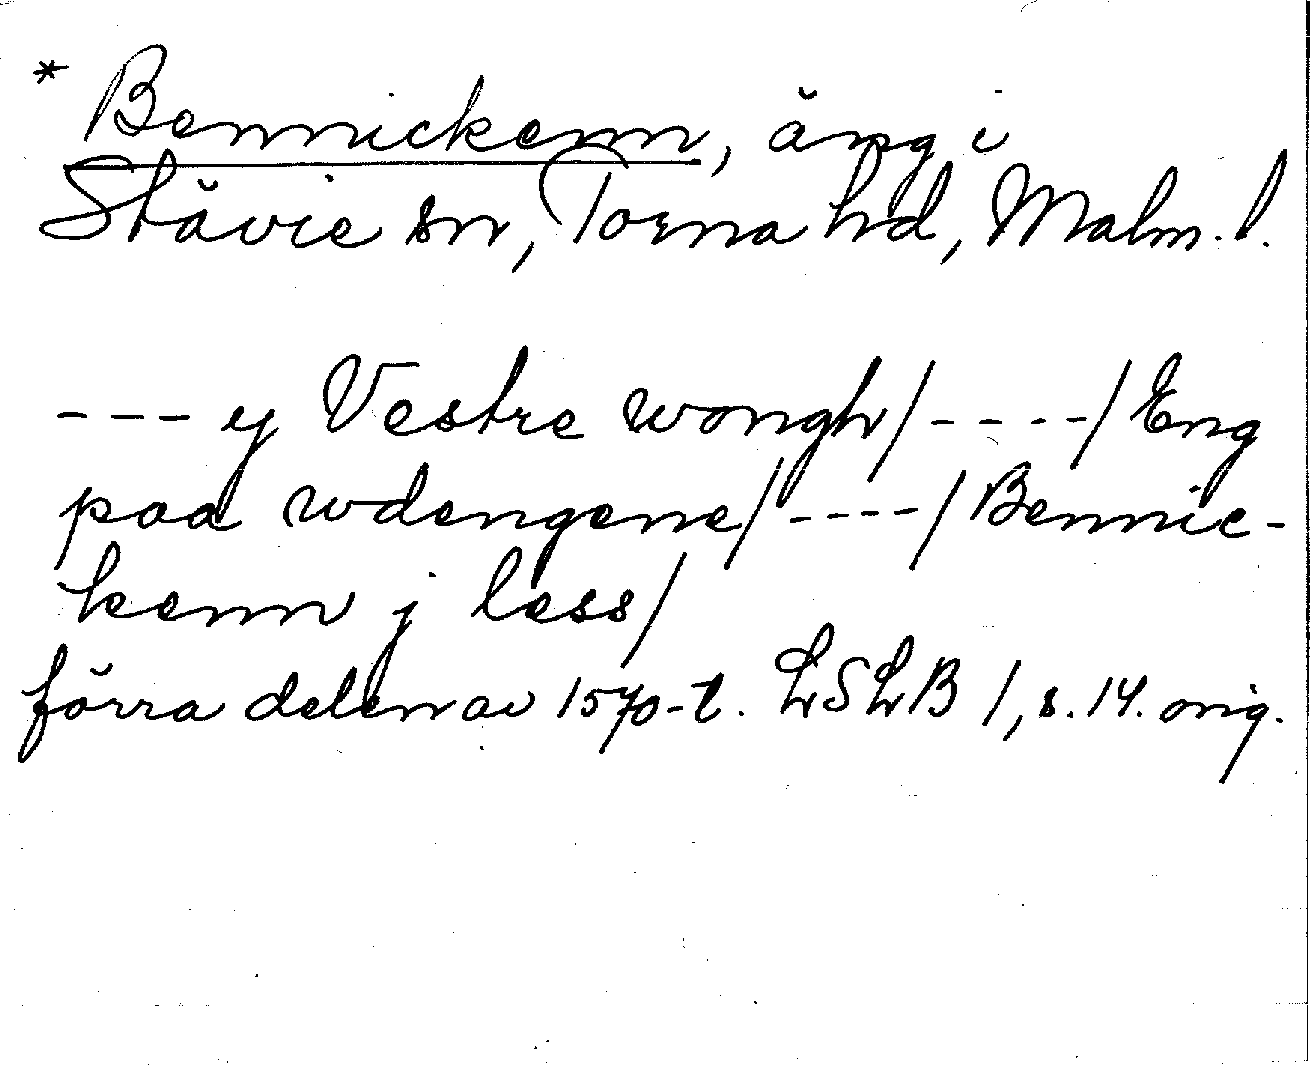 * Bennickenn, äng i
Stävie sn, Torna hd, Malm. l.
--- y Vestre wongh/----/Eng
paa wdengene/----/Bennic-
kenn j less/
förra delen av 1570-t. LSLB 1, s. 14. orig.